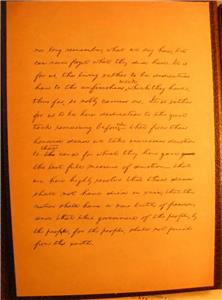 nor long remember, what we say here, but
can never forget what they did here. It is
for us, the living, rather to be dedicated
work
here to the unfinished, which they have,
thus far, so nobly carried on. It is rather
for us to be here dedicated to the great
us
task remaining before — that from these
honored dead we take increased devotion
that
to the cause for which they here gave
the last full measure of devotion – that
we here highly resolve that these dead
shall not have died in vain; that this
nation shall have a new birth of freedom;
and that this government of the people, by
the people, for the people, shall not perish
from the earth.